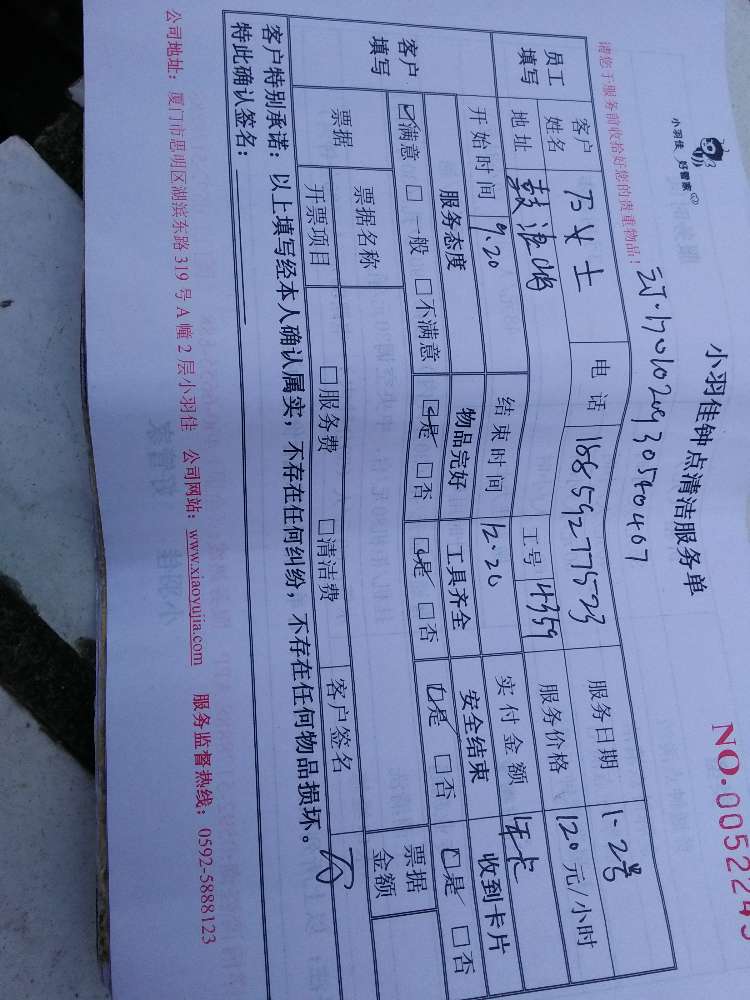 小羽佳 好管家
小羽佳钟点清洁服务单
NO.0052245
请您于服务前收拾好您的贵重物品!
员工填写
客户姓名 万女士 电话 18859277523 服务日期 1.2号
地址 鼓浪屿 工号 4359 服务价格 120元/小时
开始时间 9.20 结束时间 12.20 实付金额 年卡
客户填写
服务态度 物品完好 工具齐全 安全结束 收到卡片
☑满意 □一般 □不满意 ☑是 □否 ☑是 □否 ☑是 □否 ☑是 □否
票据 票据名称 票据金额
开票项目 □服务费 □清洁费 客户签名 万
客户特别承诺:以上填写经本人确认属实,不存在任何纠纷,不存在任何物品损坏。
特此确认签名:
公司地址:厦门市思明区湖滨东路319号A幢2层小羽佳 公司网站:www.xiaoyujia.com 服务监督热线:0592-5888123